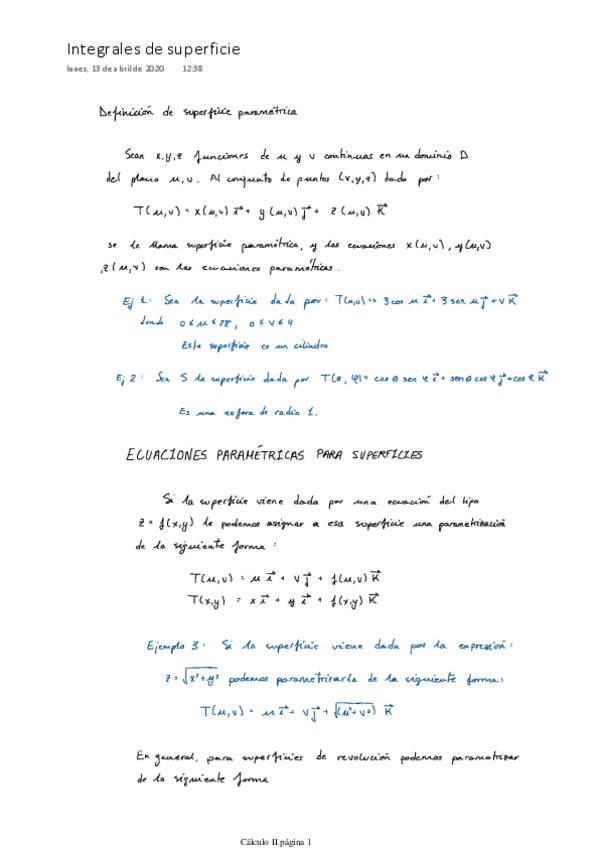 Integrales de superficie
lunes, 13 de abril de 2020 12:38
Definición de superficie paramétrica
Sean x,y,z funciones de u y v continuas en un dominio D
del plano u,v. Al conjunto de puntos (x,y,z) dado por:
T(u,v) = x(u,v) i⃗ + y(u,v) j⃗ + z(u,v) K⃗
se le llama superficie paramétrica, y las ecuaciones x(u,v), y(u,v)
,z(u,v) son las ecuaciones paramétricas.
Ej 1: Sea la superficie dada por: T(u,v) = 3 cos u i⃗ + 3 sen u j⃗ + v K⃗
donde 0 ≤ u ≤ 2π, 0 ≤ v ≤ 4
Esta superficie es un cilindro
Ej 2: Sea S la superficie dada por T(θ, φ) = cos θ sen φ i⃗ + sen θ cos φ j⃗ + cos φ K⃗
Es una esfera de radio 1.
ECUACIONES PARAMÉTRICAS PARA SUPERFICIES
Si la superficie viene dada por una ecuación del tipo
z = f(x,y) le podemos asignar a esa superficie una parametrización
de la siguiente forma:
T(u,v) = u i⃗ + v j⃗ + f(u,v) K⃗
T(x,y) = x i⃗ + y i⃗ + f(x,y) K⃗
Ejemplo 3: Si la superficie viene dada por la expresión:
z = √x²+y² podemos parametrizarla de la siguiente forma:
T(u,v) = u i⃗ + v j⃗ + √(u²+v²) K⃗
En general, para superficies de revolución podemos parametrizar
de la siguiente forma
Cálculo II página 1